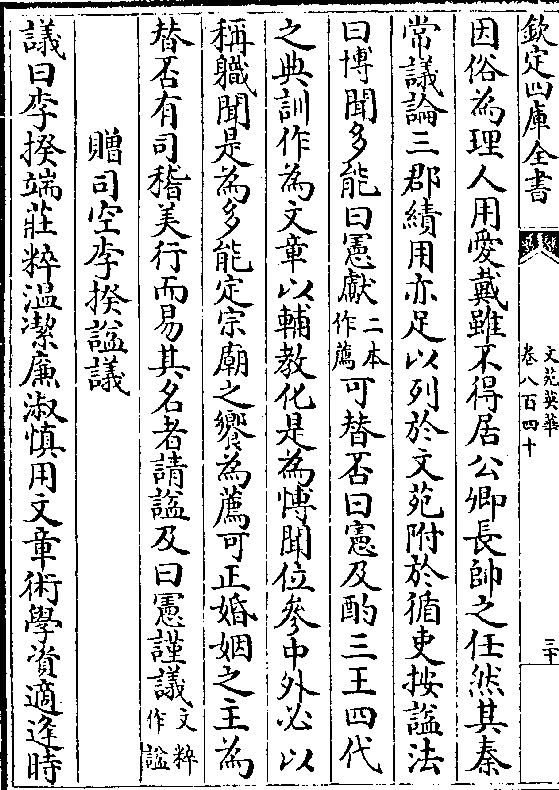 欽定四庫全書
文苑英華
卷八百四十
三十
因俗為理人用愛戴雖不得居公卿長帥之任然其秦
常議論三郡績用亦足以列於文苑附於循吏按諡法
曰博聞多能曰憲獻二本作薦可替否曰憲及酌三王四代
之典訓作為文章以輔教化是為博聞位參中外必以
稱職聞是為多能定宗廟之饗為薦可正婚姻之主為
替否有司稽美行而易其名者請諡及曰憲謹議文粹作諡
贈司空李揆諡議
議曰李揆端莊粹溫潔廉淑慎用文章術學資適逢時